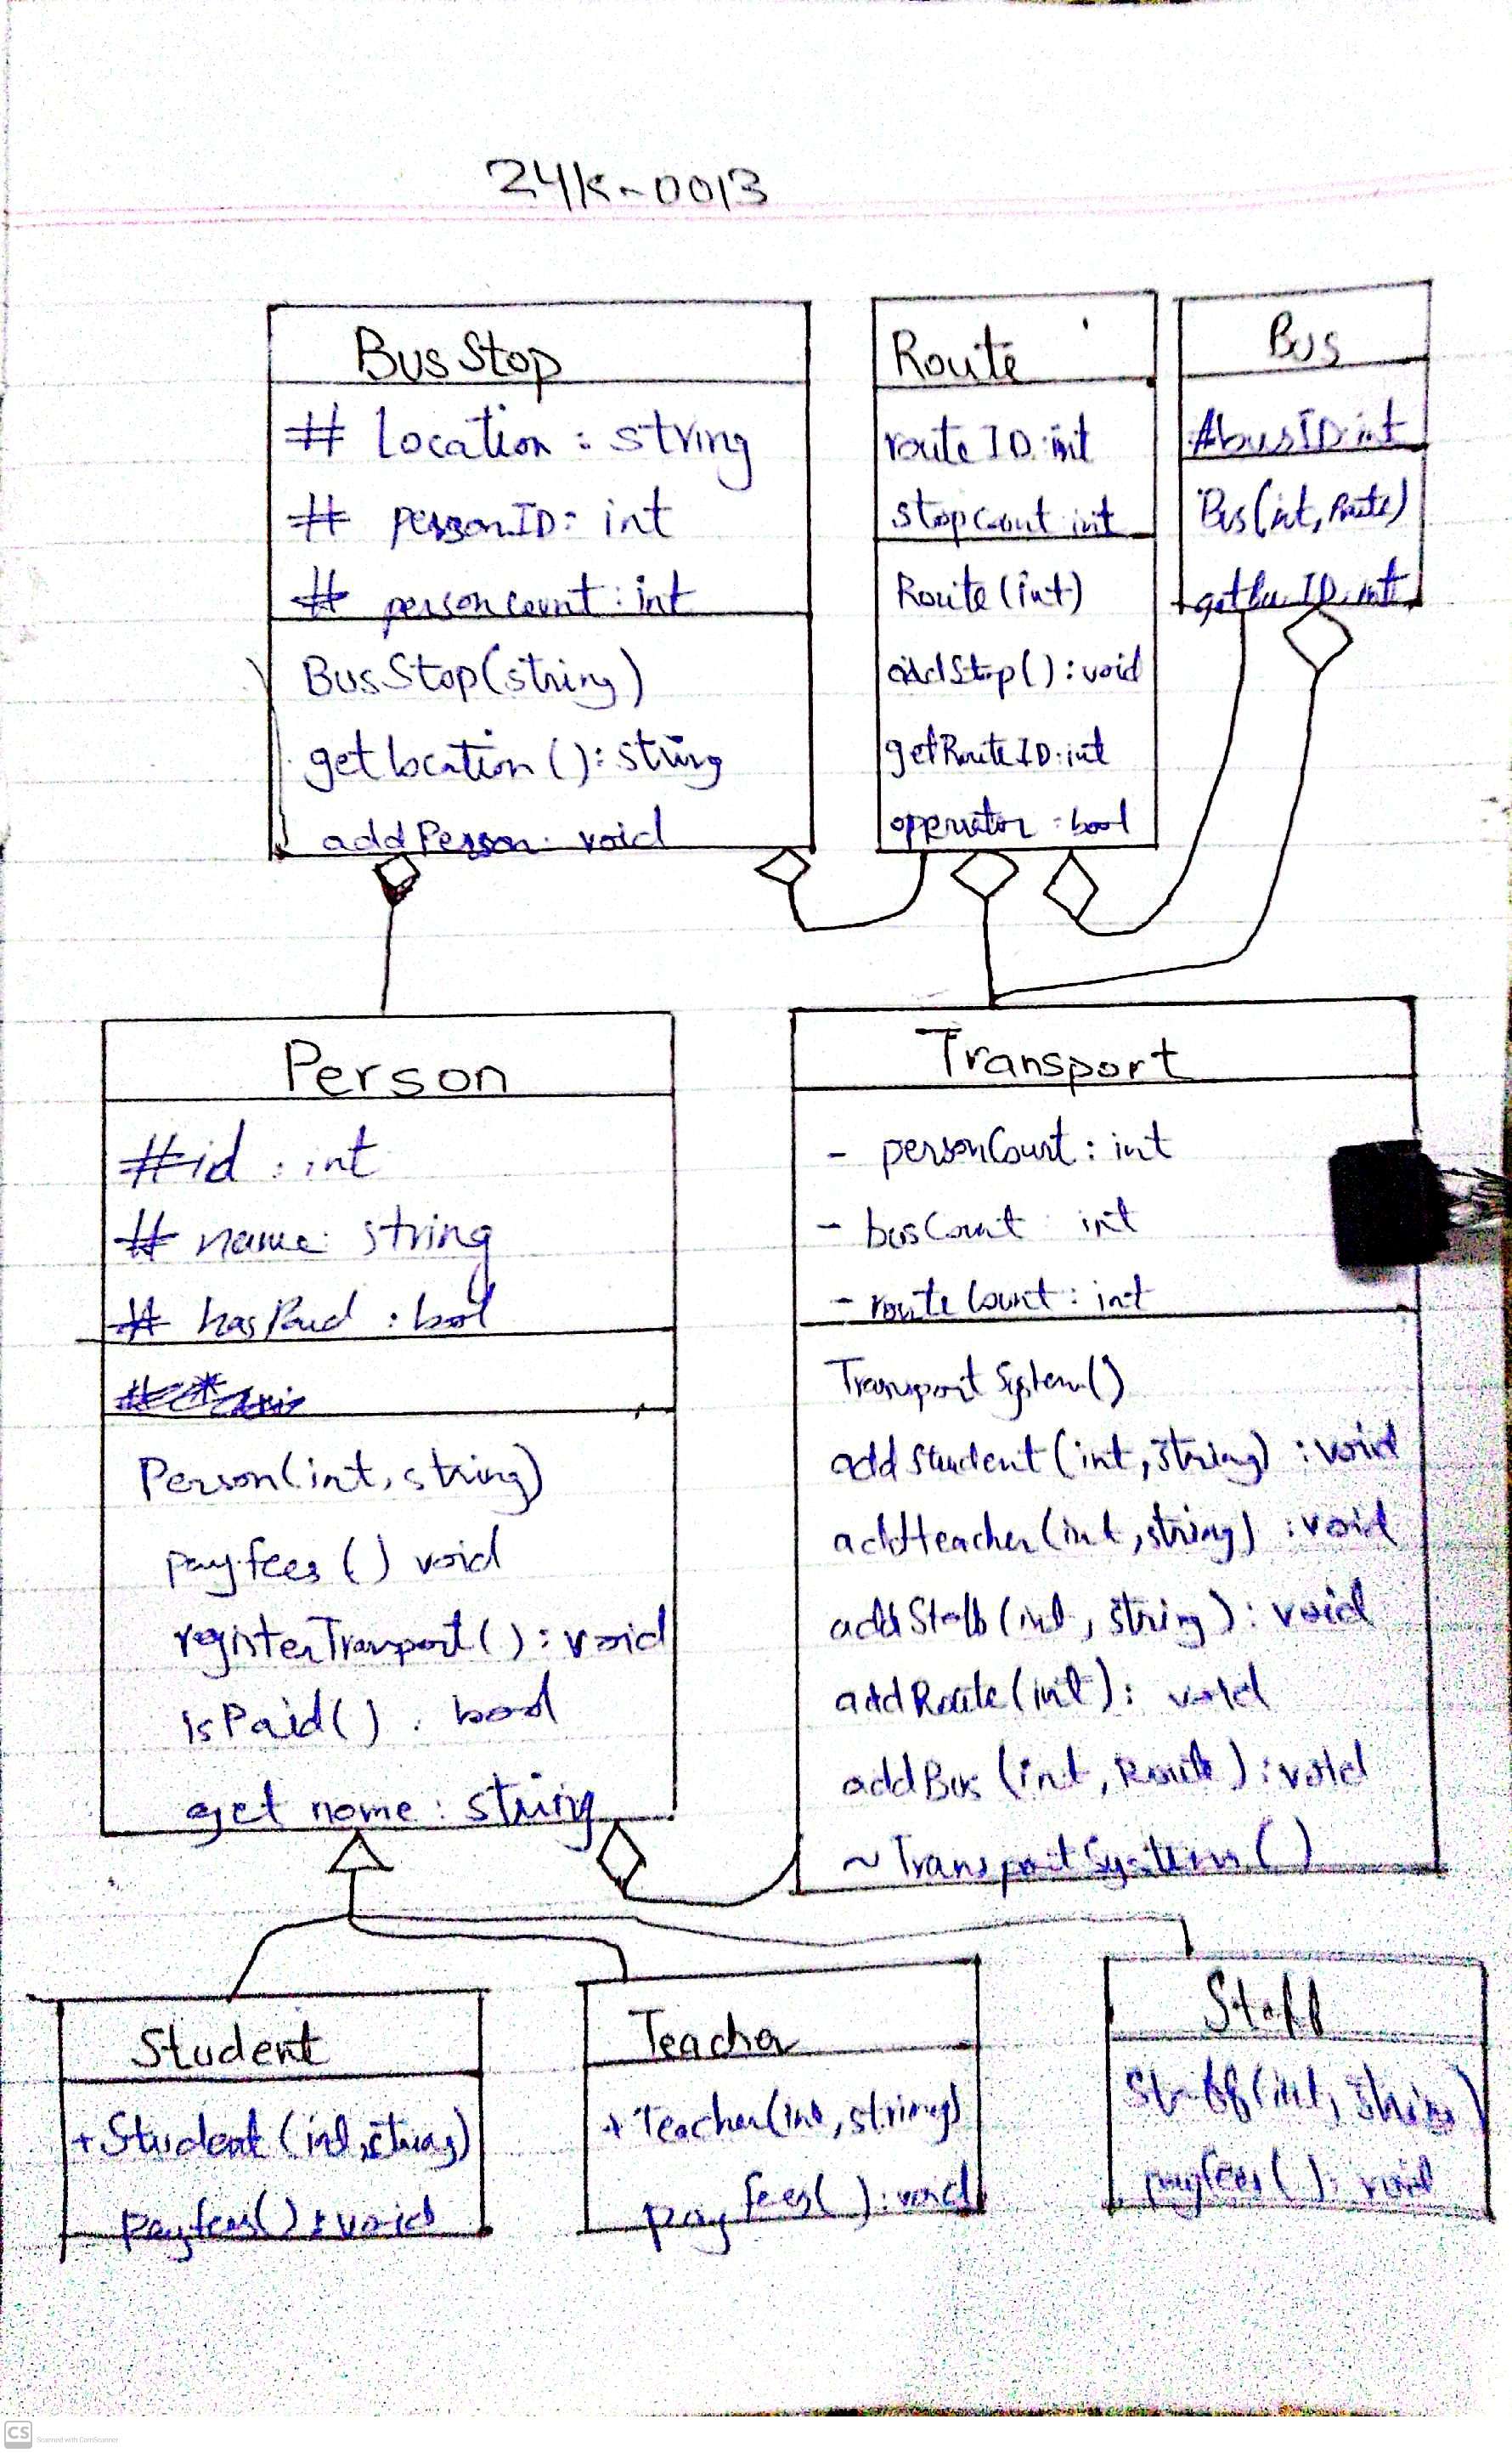 24K-0013
BusStop
# location : string
# personID: int
# personcount : int
BusStop(string)
getlocation() : string
addPerson: void
Route
routeID: int
stopcount int
Route(int)
addStop() : void
getRouteID: int
operator : bool
Bus
#busID: int
Bus(int, Route)
getbusID: int
Person
#id : int
# name: string
# hasPaid : bool
Person(int, string)
payfees() void
registerTransport() : void
isPaid() : bool
get name : string
Transport
- personCount : int
- busCount : int
- routeCount : int
TransportSystem()
addStudent(int, string) : void
addteacher(int, string) : void
addStaff(int, string) : void
addRoute(int) : void
addBus(int, Route) : void
~TransportSystem()
Student
+Student(int, string)
payfees() : void
Teacher
+Teacher(int, string)
payfees() : void
Staff
Staff(int, string)
payfees() : void
CS Scanned with CamScanner